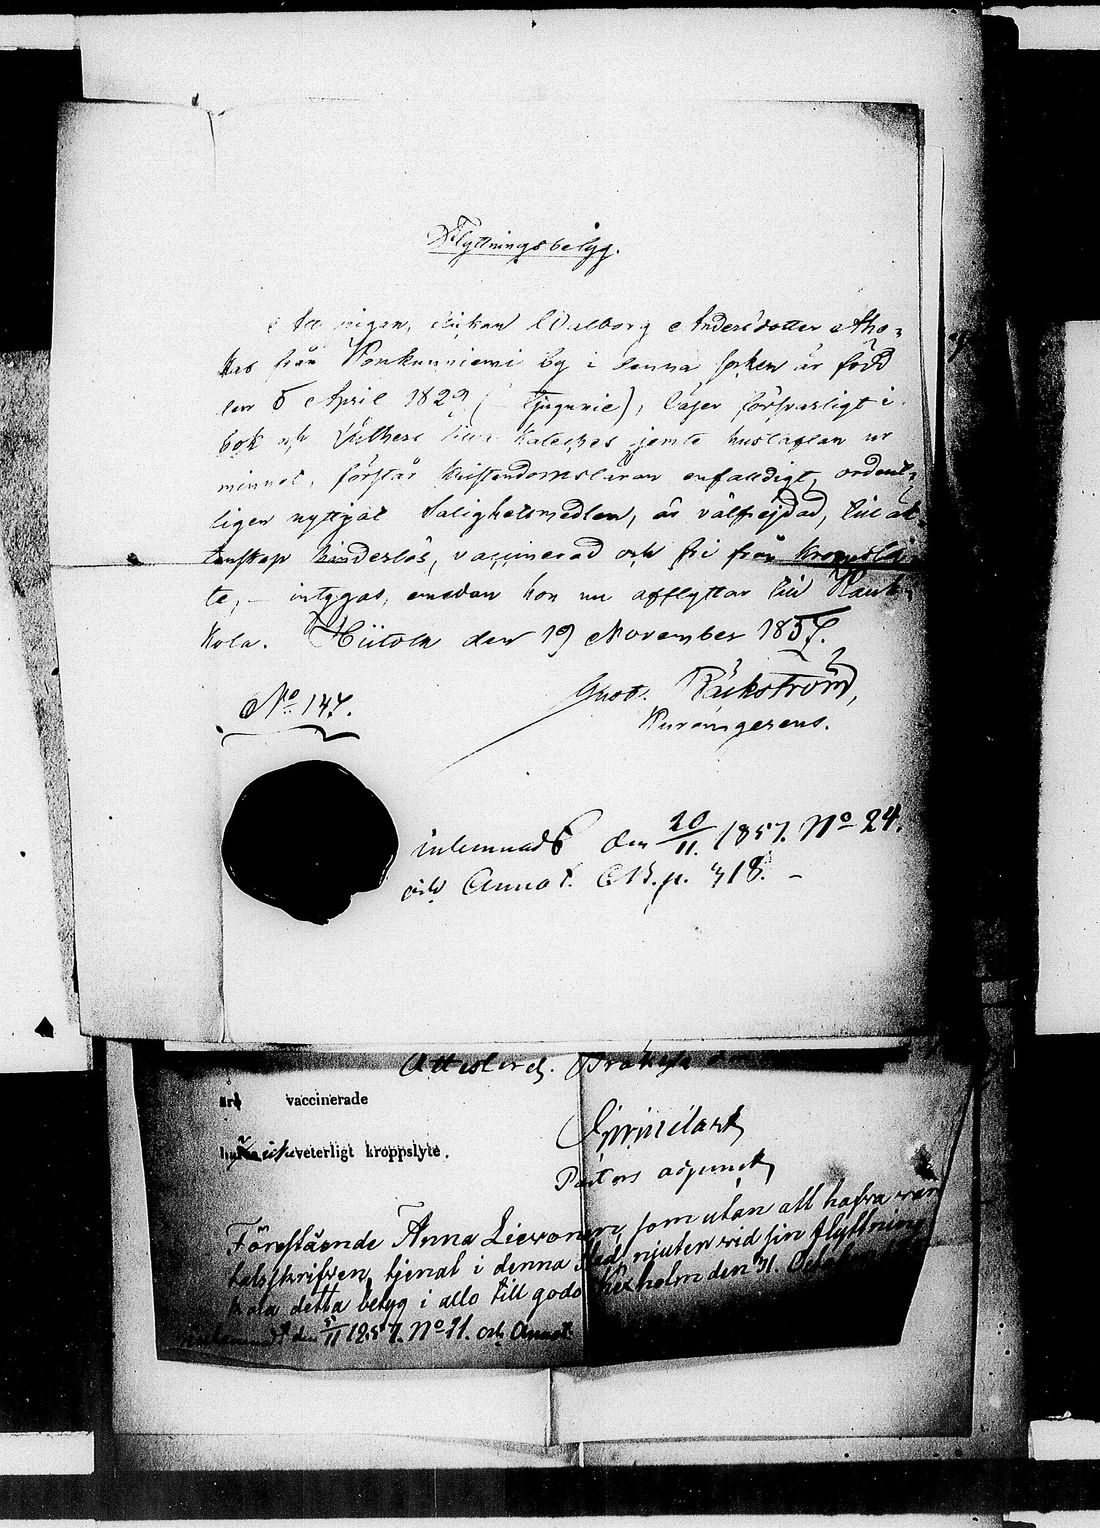 Flyttningsbetyg.
Att pigan, enkan Walborg Andersdotter Aho=
kas från Konkunniemi by i denna socken är född
den 5 April 1829 (Tjugunie), läser försvarligt i
bok och Lutheri lilla Kateches jemte hustaflan ur
minnet, förstår Kristendomsläran enfaldigt, ordent=
ligen nyttjat Salighetsmedlen, är välfrejdad, till äk=
tenskap hinderlös, vaccinerad och fri från kroppsly=
te, – intygas, emedan hon nu afflyttar till Kauk=
kola. Hiitola den 19 November 1857.
No 147.
Gust.
den 20/11 1857. No 24.
och Annot. C.B. p. 318. –
Attesterch.
äro vaccinerade
veterligt kroppslyte.
Pastors adjunct
Förestående Anna Lievonen, som utan att hafva varit
talsskrifven, tjenat i denna Stad njuten vid sin flyttning
detta betyg i allo till godo Kexholm den 31 October
den 5/11 1857. No 21. och Annot.